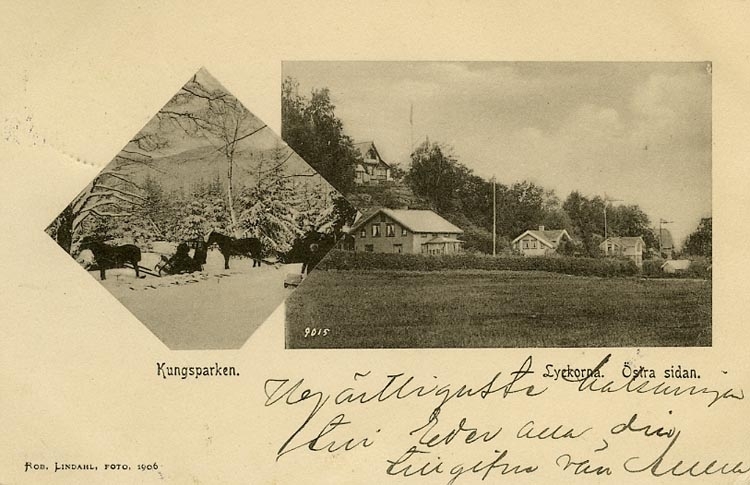 9015
Kungsparken.
Lyckorna. Östra sidan.
Hjärtligaste hälsningar
till Eder alla, din
tillgifna vän Anna
Rob. Lindahl, foto. 1906